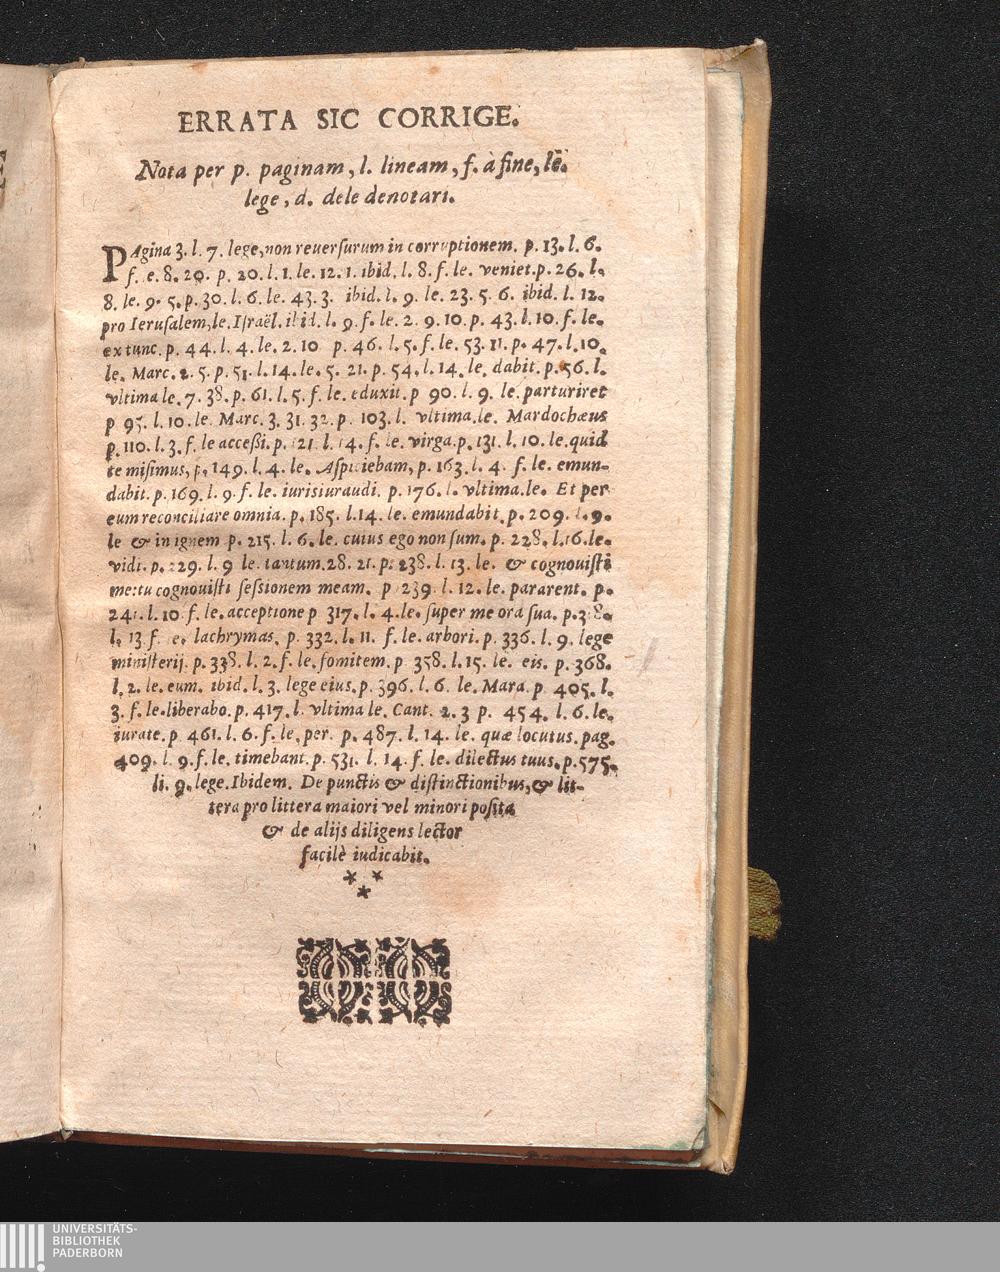 ERRATA SIC CORRIGE.
Nota per p. paginam, l. lineam, f. à fine, lē.
lege, d. dele denotari.
PAgina 3. l. 7. lege, non reuerſurum in corruptionem. p. 13. l. 6.
f. e. 8. 20. p. 20. l. 1. le. 12. 1. ibid. l. 8. f. le. veniet. p. 26. l.
8. le. 9. 5. p. 30. l. 6. le. 43. 3. ibid. l. 9. le. 23. 5. 6. ibid. l. 12.
pro Ieruſalem, le. Iſraël. ibid. l. 9. f. le. 2. 9. 10. p. 43. l. 10. f. le.
ex tunc. p. 44. l. 4. le. 2. 10 p. 46. l. 5. f. le. 53. 11. p. 47. l. 10.
le. Marc. 2. 5. p. 51. l. 14. le. 5. 21. p. 54. l. 14. le. dabit. p. 56. l.
vltima le. 7. 38. p. 61. l. 5. f. le. eduxit. p 90. l. 9. le. parturiret
p 95. l. 10. le. Marc. 3. 31. 32. p. 103. l. vltima. le. Mardochæus
p. 110. l. 3. f. le acceßi. p. 121. l. 14. f. le. virga. p. 131. l. 10. le. quid
te miſimus, p. 149. l. 4. le. Aſpiciebam, p. 163. l. 4. f. le. emun-
dabit. p. 169. l. 9. f. le. iurisiuraudi. p. 176. l. vltima. le. Et per
eum reconciliare omnia. p. 185. l. 14. le. emundabit. p. 209. l. 9.
le & in ignem p. 215. l. 6. le. cuius ego non ſum. p. 228. l. 16. le.
vidi. p. 229. l. 9 le. tantum. 28. 21. p. 238. l. 13. le. & cognouiſti
me: tu cognouiſti ſeſsionem meam. p 239. l. 12. le. pararent. p.
241. l. 10. f. le. acceptione p 317. l. 4. le. ſuper me ora ſua. p.
l. 13 f. le. lachrymas. p. 332. l. 11. f. le. arbori. p. 336. l. 9. lege
miniſterij. p. 338. l. 2. f. le. fomitem. p 358. l. 15. le. eis. p. 368.
l. 2. le. eum. ibid. l. 3. lege eius. p. 396. l. 6. le. Mara. p. 405. l.
3. f. le. liberabo. p. 417. l. vltima le. Cant. 2. 3 p. 454. l. 6. le.
iurate. p. 461. l. 6. f. le, per. p. 487. l. 14. le. quæ locutus. pag.
409. l. 9. f. le. timebant. p. 531. l. 14. f. le. dilectus tuus. p. 575.
li. 9. lege. Ibidem. De punctis & diſtinctionibus, & lit-
tera pro littera maiori vel minori poſita
& de alijs diligens lector
facilè iudicabit.
UNIVERSITÄTS-
BIBLIOTHEK
PADERBORN